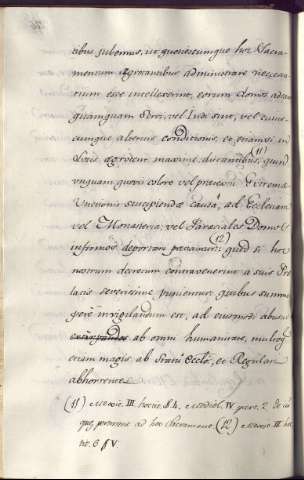 tibus subimus, ut quotiescumque hoc Sacra-
mentum ægrotantibus administrare neces-
arium esse intellexerint, eorum domos adeant
quamquam Servi, vel Indi sint, vel cujus-
cumque alterius conditionis, et etiamsi in
(11)
maxime, quin
unquam quovis colore vel prætextu Extrema
Unctionis suscipiendæ causa, ad Ecclesiam
vel Monasteria, vel Parœciales Domos
infirmos deportari patiantur: (12) quod si hoc
nostrum decretum contravenerint a suis Præ-
latis severissime punientur, quibus summo-
pere invigilandum est, ad eiusmodi abusus
extirpandos ab omni humanitate, multoq
etiam magis ab statu Eccles. et Regulari
abhorrentes.
(11) Mexic. III. hoc tit. § 4. Mediol. IV. part. 2. de iis
quæ pertinent ad hoc Sacrament. (12) Mexic. III. hoc
tit. 6 § V.